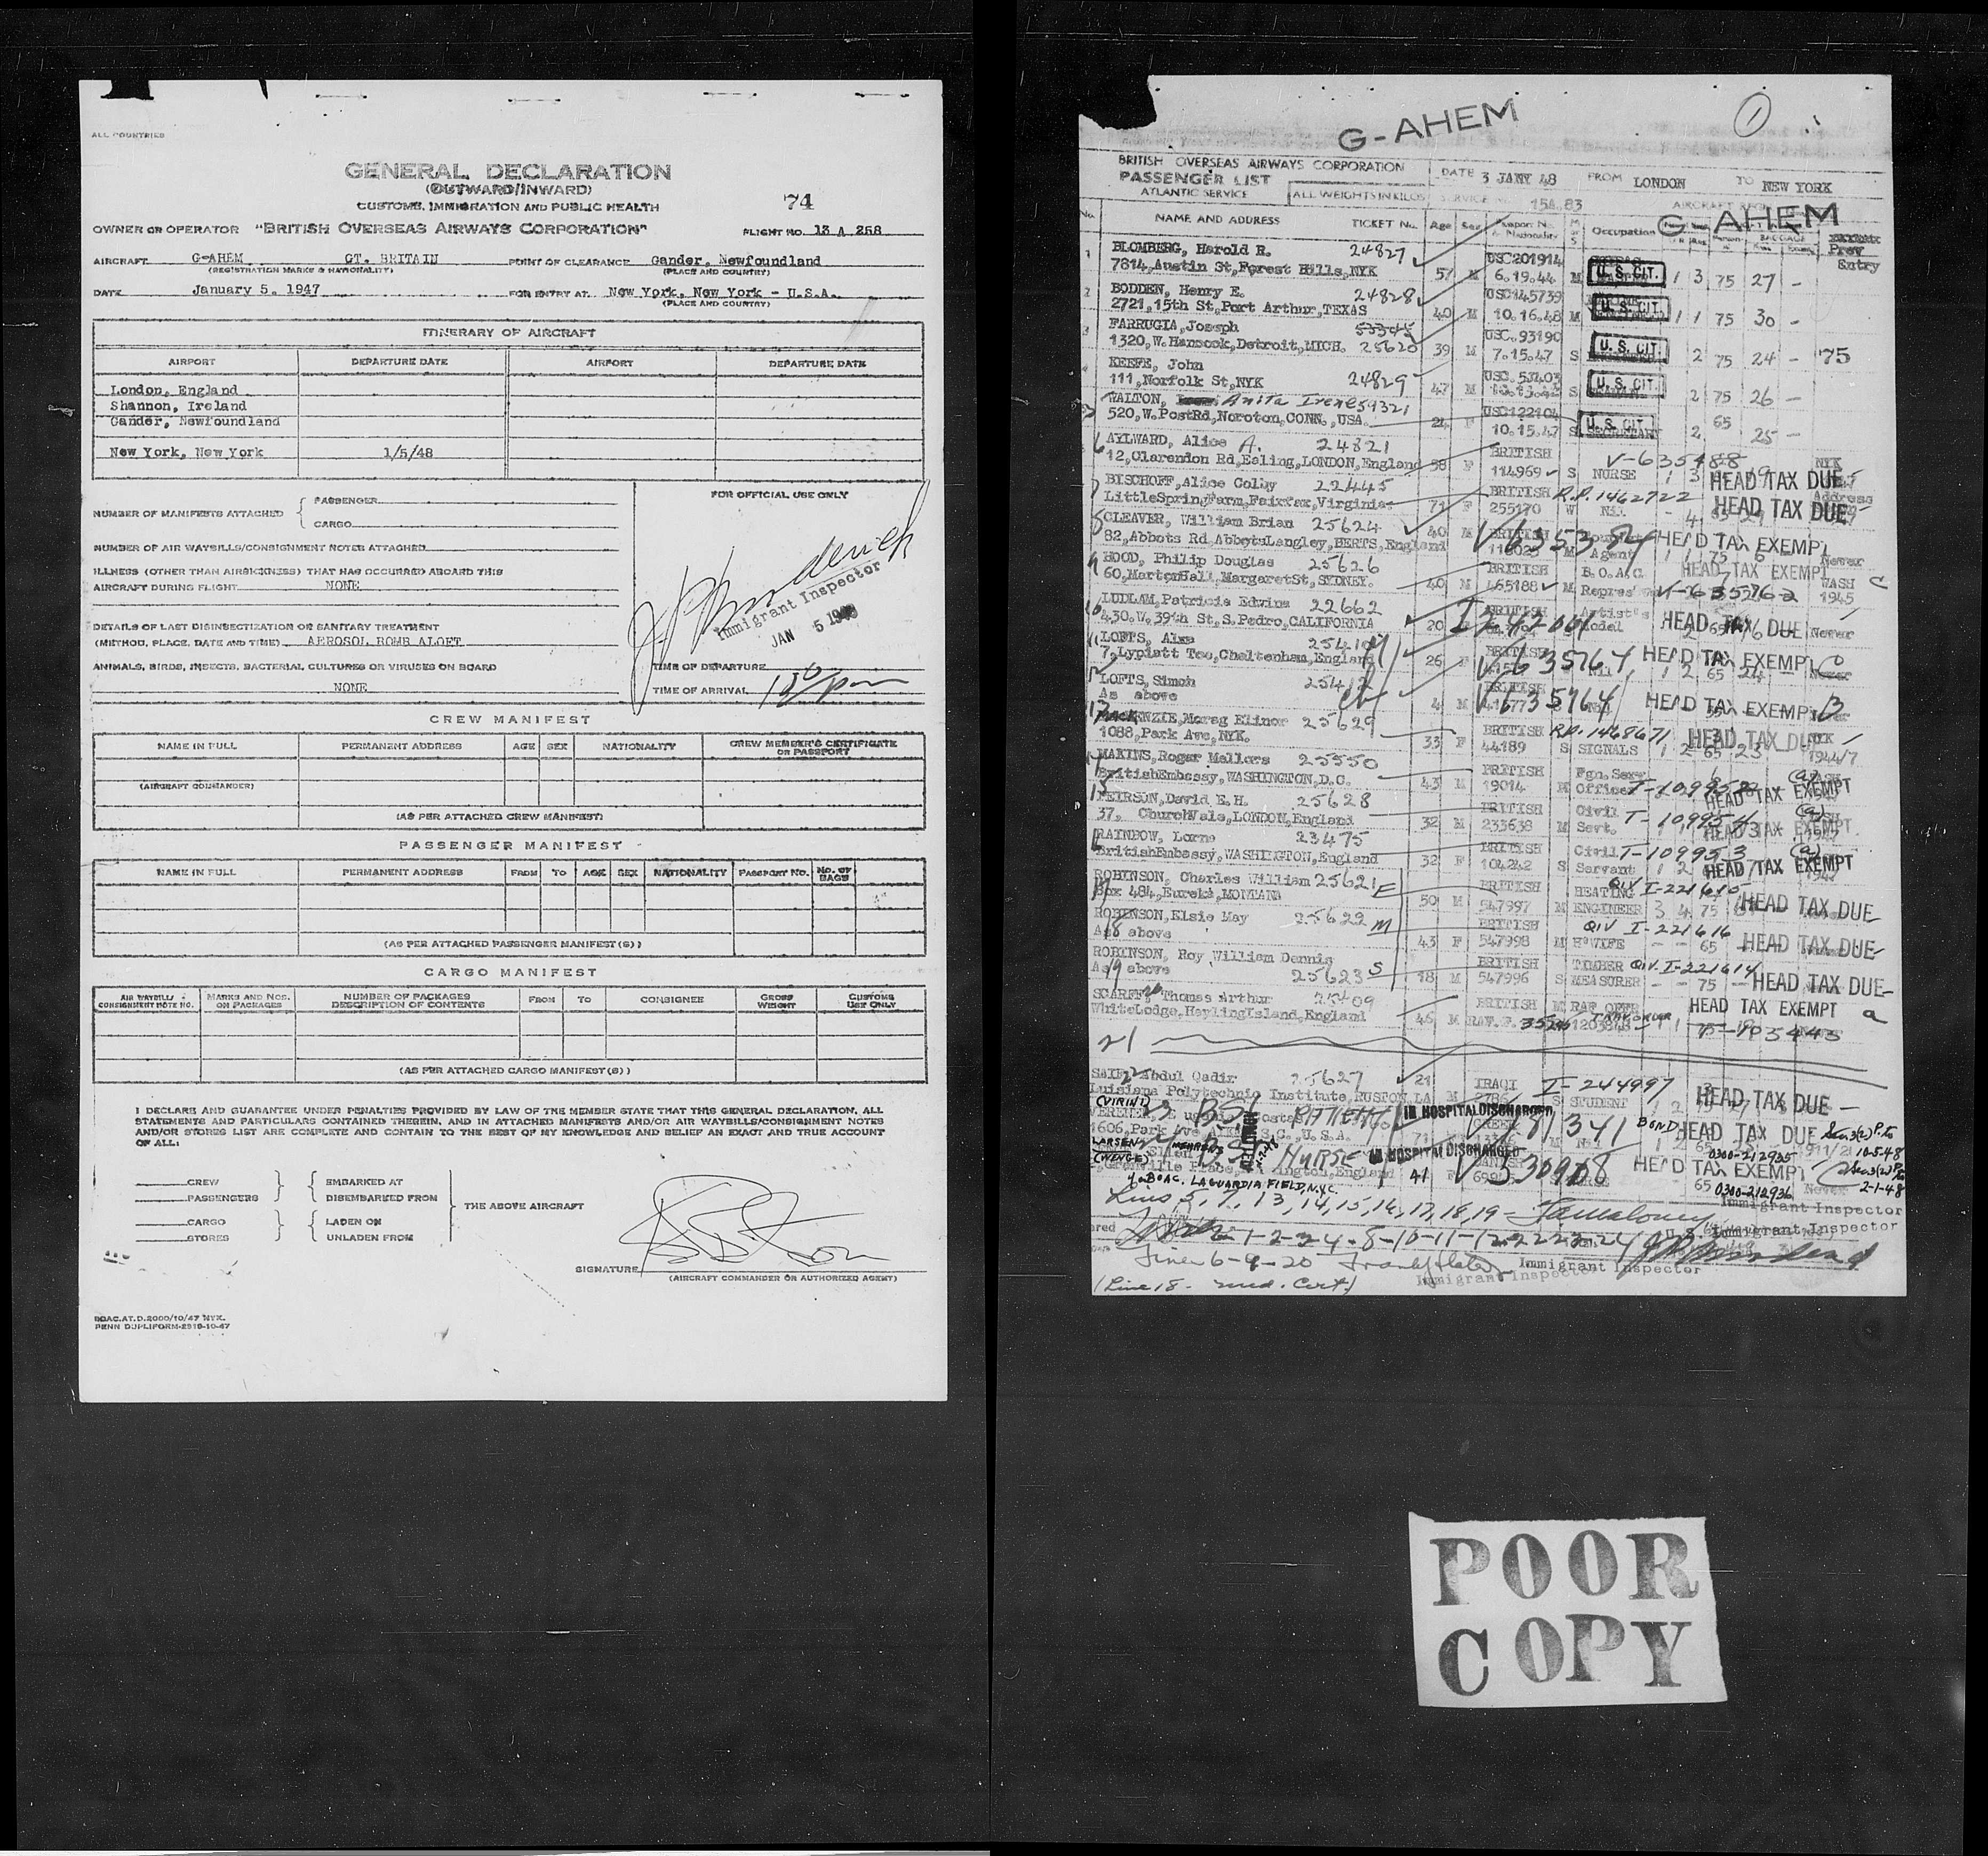 ALL COUNTRIES
GENERAL DECLARATION
(OUTWARD/INWARD)
CUSTOMS, IMMIGRATION AND PUBLIC HEALTH
74
OWNER OR OPERATOR "BRITISH OVERSEAS AIRWAYS CORPORATION" FLIGHT NO. 13 A 268
AIRCRAFT G-AHEM GT. BRITAIN POINT OF CLEARANCE Gander, Newfoundland
(REGISTRATION MARKS & NATIONALITY) (PLACE AND COUNTRY)
DATE January 5, 1947 FOR ENTRY AT New York, New York - U.S.A.
(PLACE AND COUNTRY)
ITINERARY OF AIRCRAFT
AIRPORT DEPARTURE DATE AIRPORT DEPARTURE DATE
London, England
Shannon, Ireland
Gander, Newfoundland
New York, New York 1/5/48
NUMBER OF MANIFESTS ATTACHED { PASSENGER
CARGO
FOR OFFICIAL USE ONLY
NUMBER OF AIR WAYBILLS/CONSIGNMENT NOTES ATTACHED
ILLNESS (OTHER THAN AIRSICKNESS) THAT HAS OCCURRED ABOARD THIS
AIRCRAFT DURING FLIGHT NONE
Immigrant Inspector
JAN 5 1948
DETAILS OF LAST DISINSECTIZATION OR SANITARY TREATMENT
(METHOD, PLACE, DATE AND TIME) AEROSOL BOMB ALOFT
ANIMALS, BIRDS, INSECTS, BACTERIAL CULTURES OR VIRUSES ON BOARD
NONE
TIME OF DEPARTURE
TIME OF ARRIVAL
CREW MANIFEST
NAME IN FULL PERMANENT ADDRESS AGE SEX NATIONALITY CREW MEMBER'S CERTIFICATE OR PASSPORT
(AIRCRAFT COMMANDER)
(AS PER ATTACHED CREW MANIFEST)
PASSENGER MANIFEST
NAME IN FULL PERMANENT ADDRESS FROM TO AGE SEX NATIONALITY PASSPORT NO. NO. OF BAGS
(AS PER ATTACHED PASSENGER MANIFEST(S))
CARGO MANIFEST
AIR WAYBILL/CONSIGNMENT NOTE NO. MARKS AND NOS. ON PACKAGES NUMBER OF PACKAGES DESCRIPTION OF CONTENTS FROM TO CONSIGNEE GROSS WEIGHT CUSTOMS USE ONLY
(AS PER ATTACHED CARGO MANIFEST(S))
I DECLARE AND GUARANTEE UNDER PENALTIES PROVIDED BY LAW OF THE MEMBER STATE THAT THIS GENERAL DECLARATION, ALL
STATEMENTS AND PARTICULARS CONTAINED THEREIN, AND IN ATTACHED MANIFESTS AND/OR AIR WAYBILLS/CONSIGNMENT NOTES
AND/OR STORES LIST ARE COMPLETE AND CONTAIN TO THE BEST OF MY KNOWLEDGE AND BELIEF AN EXACT AND TRUE ACCOUNT
OF ALL:
CREW EMBARKED AT
PASSENGERS DISEMBARKED FROM THE ABOVE AIRCRAFT
CARGO LADEN ON
STORES UNLADEN FROM
SIGNATURE
(AIRCRAFT COMMANDER OR AUTHORIZED AGENT)
BOAC.AT.D.2000/10/47 NYK.
PENN DUPLIFORM-2919-10-47
G-AHEM 1
BRITISH OVERSEAS AIRWAYS CORPORATION
PASSENGER LIST DATE 3 JANY 48 FROM LONDON TO NEW YORK
ATLANTIC SERVICE ALL WEIGHTS IN KILOS 15A.83
G-AHEM
No. NAME AND ADDRESS TICKET No. Age Sex Occupation Prev Entry
BLOMBERG, Harold R. 24827 USC201914
7814, Austin St, Forest Hills, NYK 57 M 6.19.44 M U.S. CIT. 1 3 75 27 -
BODDEN, Henry E. 24828 USC145739
2721, 15th St, Port Arthur, TEXAS 40 M 10.16.48 M U.S. CIT. 1 1 75 30 -
FARRUGIA, Joseph USC.93190
1320, W. Hancock, Detroit, MICH. 25620 39 M 7.15.47 S U.S. CIT. 2 75 24 - 75
KEEFE, John USC.
111, Norfolk St, NYK 24829 47 M S U.S. CIT. 2 75 26 -
WALTON, Anita Irene 59321 USC122104
520, W. Post Rd, Noroton, CONN., USA. 24 F 10.15.47 S U.S. CIT. 2 65 25 -
AYLWARD, Alice A. 24821 BRITISH V-635488 NYK
12, Clarendon Rd, Ealing, LONDON, England 58 F 114969 S NURSE 1 3 HEAD TAX DUE
BYSCHOFF, Alice Colby 22445 BRITISH R.P. 1462722 Address
LittleSpringFarm, Fairfax, Virginia 71 F 255170 W Nil. HEAD TAX DUE
CLEAVER, William Brian 25624 BRITISH
82, Abbots Rd, AbbotsLangley, HERTS, England 40 M M Agent HEAD TAX EXEMPT Never
HOOD, Philip Douglas 25626 BRITISH B.O.A.C. HEAD TAX EXEMPT WASH
60, MartonHall, MargaretSt, SYDNEY. 40 M 465188 M Repres' V-635762 1945 C
LUDLAM, Patricia Edwina 22662 BRITISH Artist's
430, W. 39th St, S. Pedro, CALIFORNIA 20 Model HEAD TAX DUE Never
LOFTS, BRITISH
7, Lypiatt Tce, Cheltenham, England 26 F V635764 HEAD TAX EXEMPT
LOFTS, Simon BRITISH
As above 4 M V635764 HEAD TAX EXEMPT
MACKENZIE, Morag Elinor 25629 BRITISH R.P. 1468671 HEAD TAX DUE NYK
1088, Park Ave, NYK. 33 F 44189 S SIGNALS 1 2 65 23 1944/7
MAKINS, Roger Mellors 25550 BRITISH Fgn. Serv
BritishEmbassy, WASHINGTON, D.C. 43 M 19014 M Officer HEAD TAX EXEMPT
PEIRSON, David E. H. 25628 BRITISH Civil T-109954
37, ChurchVale, LONDON, England 32 M 233638 M Servt. HEAD TAX EXEMPT
RAINBOW, Lorna 23475 BRITISH Civil T-109953
BritishEmbassy, WASHINGTON, England 32 F 104242 S Servant 1 2 HEAD TAX EXEMPT
ROBINSON, Charles William 25621 BRITISH HEATING QIV I-221615
Box 484, Eureka, MONTANA 50 M 547997 M ENGINEER 3 4 75 HEAD TAX DUE
ROBINSON, Elsie May 25622 M BRITISH QIV I-221616
As above 43 F 547998 M H'WIFE - - 65 HEAD TAX DUE
ROBINSON, Roy William Dennis BRITISH TIMBER QIV. I-221614
As above 25623 S 18 M 547996 S MEASURER - - 75 HEAD TAX DUE
SCARFF, Thomas Arthur 25409 BRITISH M RAF OFFR HEAD TAX EXEMPT a
WhiteLodge, HaylingIsland, England 46 M
21
SAIF, Abdul Qadir 25627 21 IRAQI I-244997
Luisiana Polytechnic Institute, RUSTON, LA M S STUDENT HEAD TAX DUE
(VIRIND) B.S.I. PATIENT IN HOSPITAL DISCHARGED 181341 BOND HEAD TAX DUE
1606, Park Ave U.S.A. 71 0300-212935 10-5-48
LARSEN NURSE IN HOSPITAL DISCHARGED
(WENGE) England 41 F HEAD TAX EXEMPT
℅ BOAC. LAGUARDIA FIELD, N.Y.C. 65 0300-212936 Never 2-1-48
Immigrant Inspector
Lines 5, 7, 13, 14, 15, 16, 17, 18, 19 -
Immigrant Inspector
Lines 6-9-20 Immigrant Inspector
Immigrant Inspector
(Line 18 - med. Cert.)
POOR
COPY